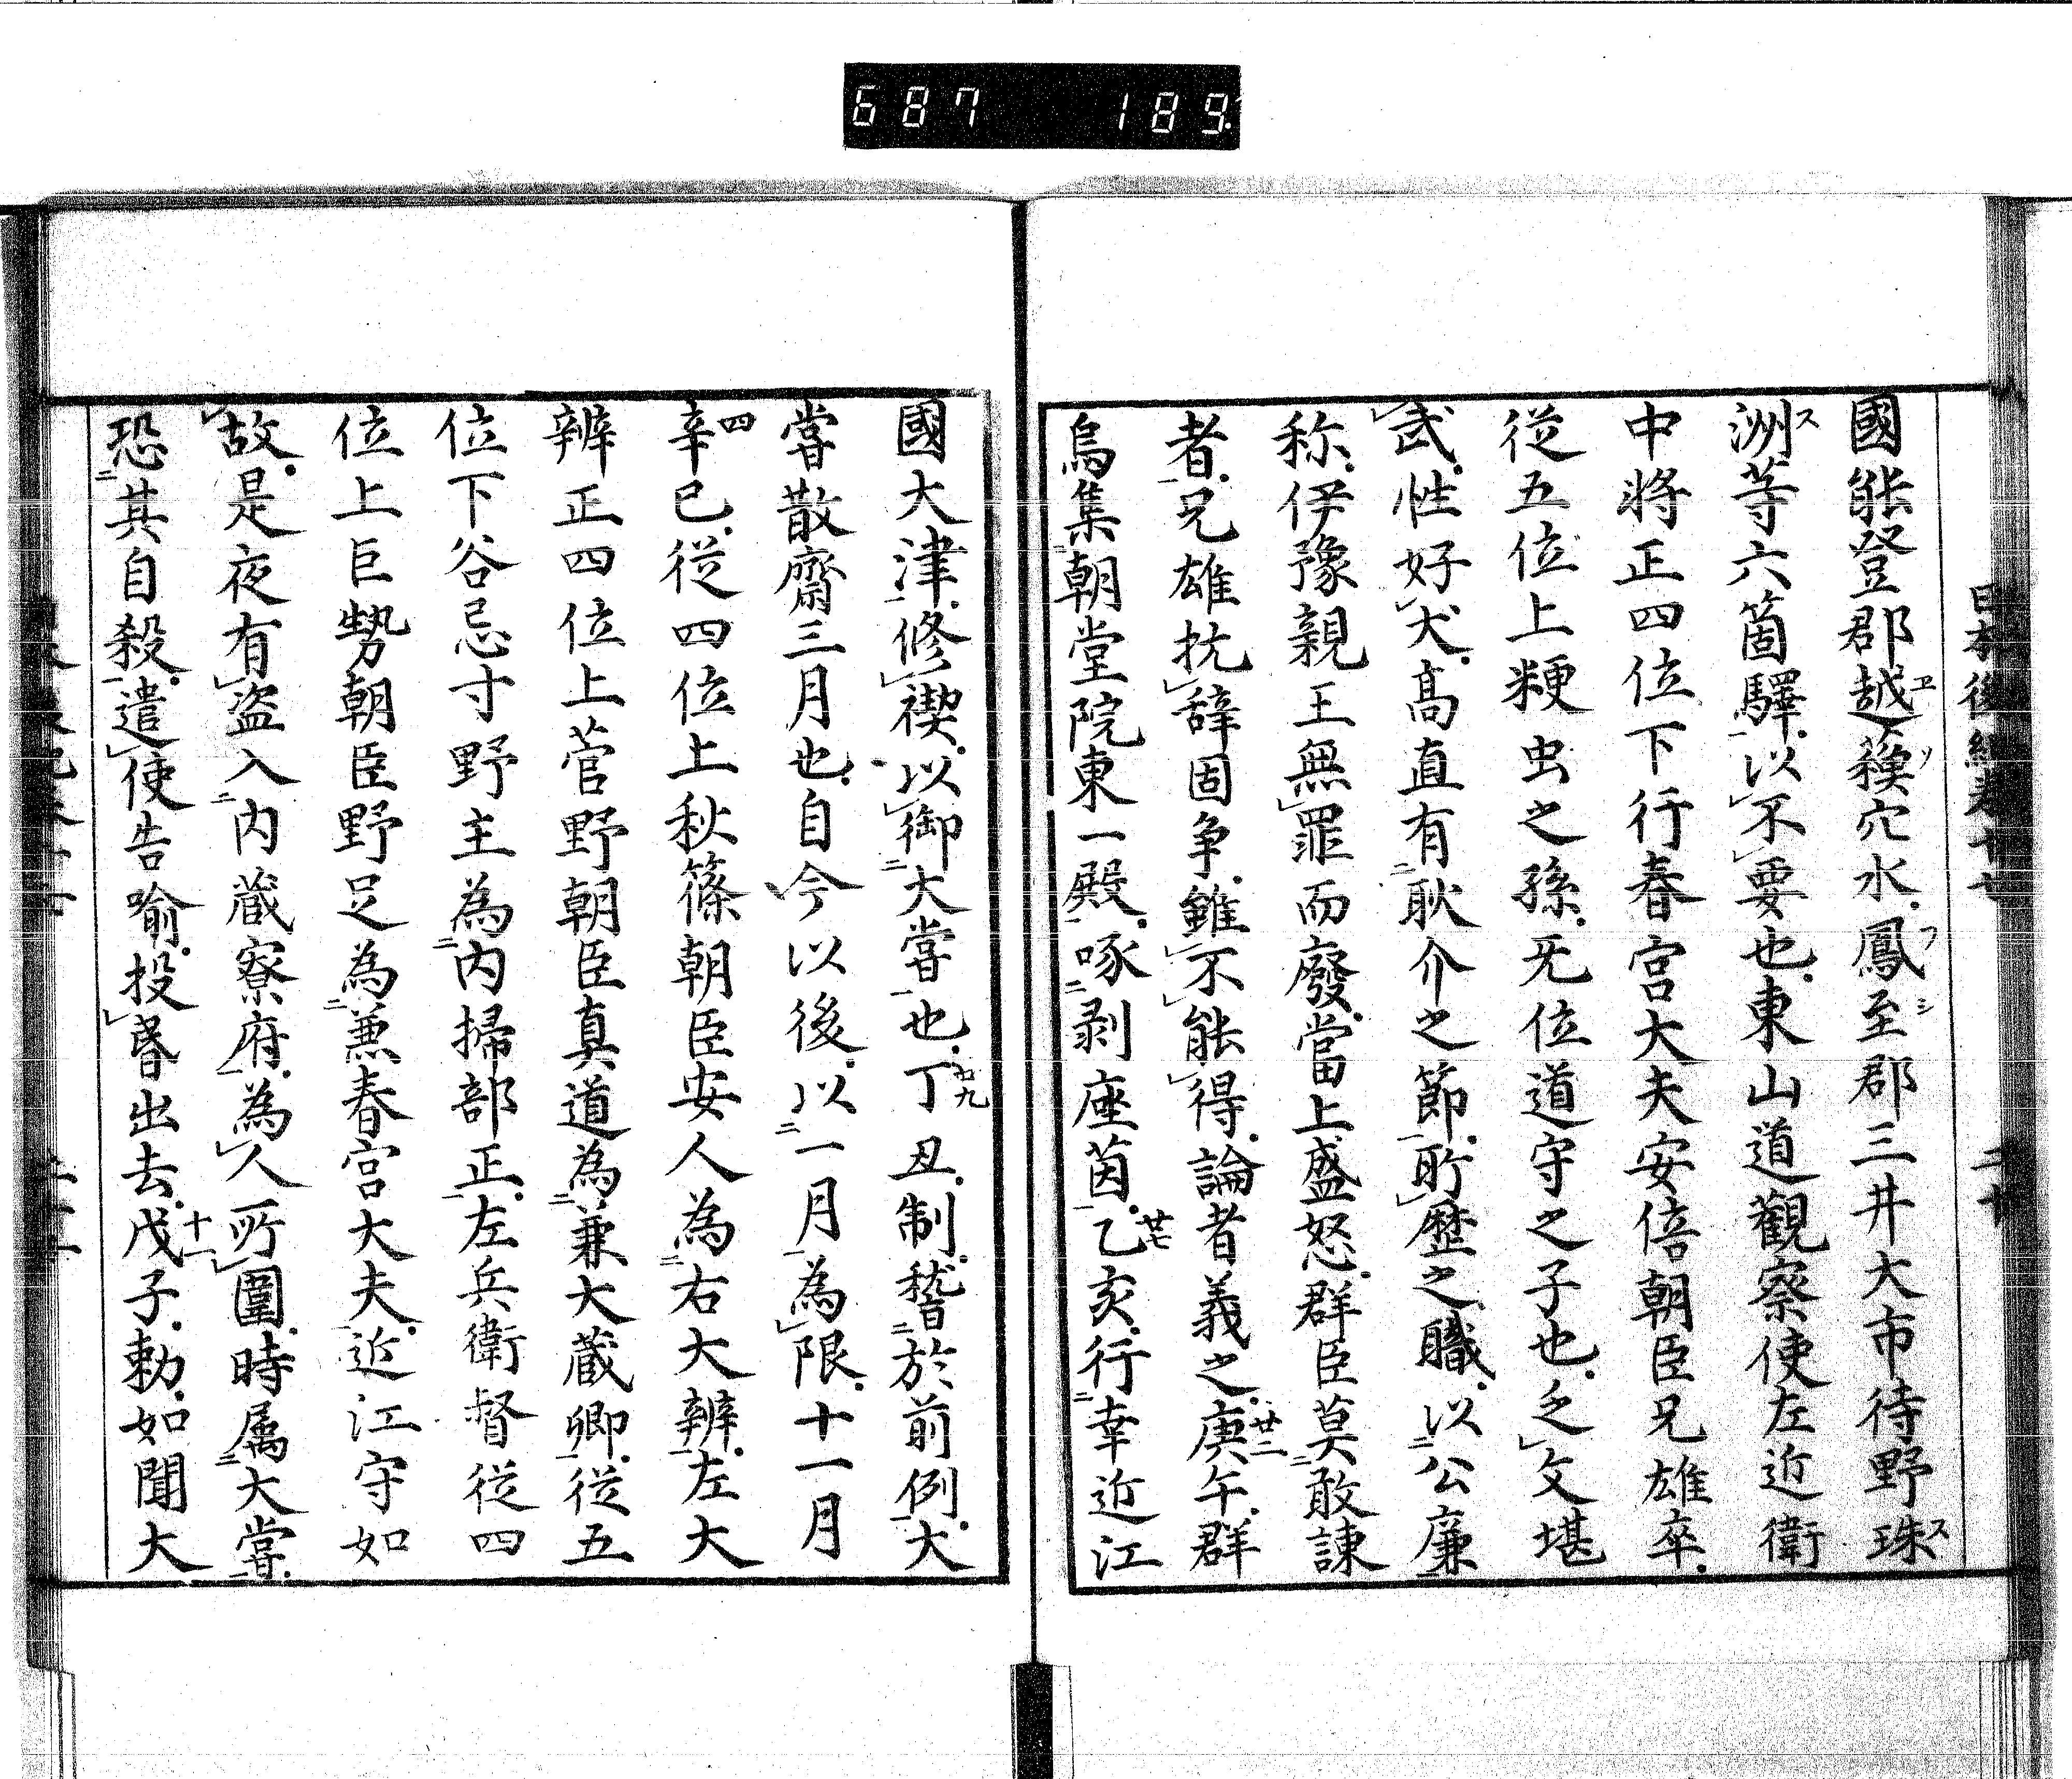 687 189
日本後紀卷十七 二十
國能登郡越蘓穴水.鳳至郡三井大市待野珠
洲等六箇驛.以不要也.東山道觀察使左近衛
中將正四位下行春宮大夫安倍朝臣兄雄卒.
從五位上粳虫之孫.无位道守之子也.乏文堪
武.性好犬.高直有耿介之節.所歷之職.以公廉
称.伊豫親王無罪而廢.當上盛怒.群臣莫敢諫
者.兄雄抗辞固争.雖不能得.論者義之.庚午.群
烏集朝堂院東一殿.啄剥座茵.乙亥.行幸近江
國大津.修禊.以御大嘗也.丁丑.制.稽於前例.大
嘗散齋三月也.自今以後.以一月為限.十一月
辛巳.從四位上秋篠朝臣安人為右大辨.左大
辨正四位上菅野朝臣真道為兼大蔵卿.從五
位下谷忌寸野主為内掃部正.左兵衛督從四
位上巨勢朝臣野足為兼春宮大夫.近江守如
故.是夜有盜入内蔵寮府.為人所圍.時属大嘗.
恐其自殺.遣使告喻.投昏出去.戊子.勅.如聞大